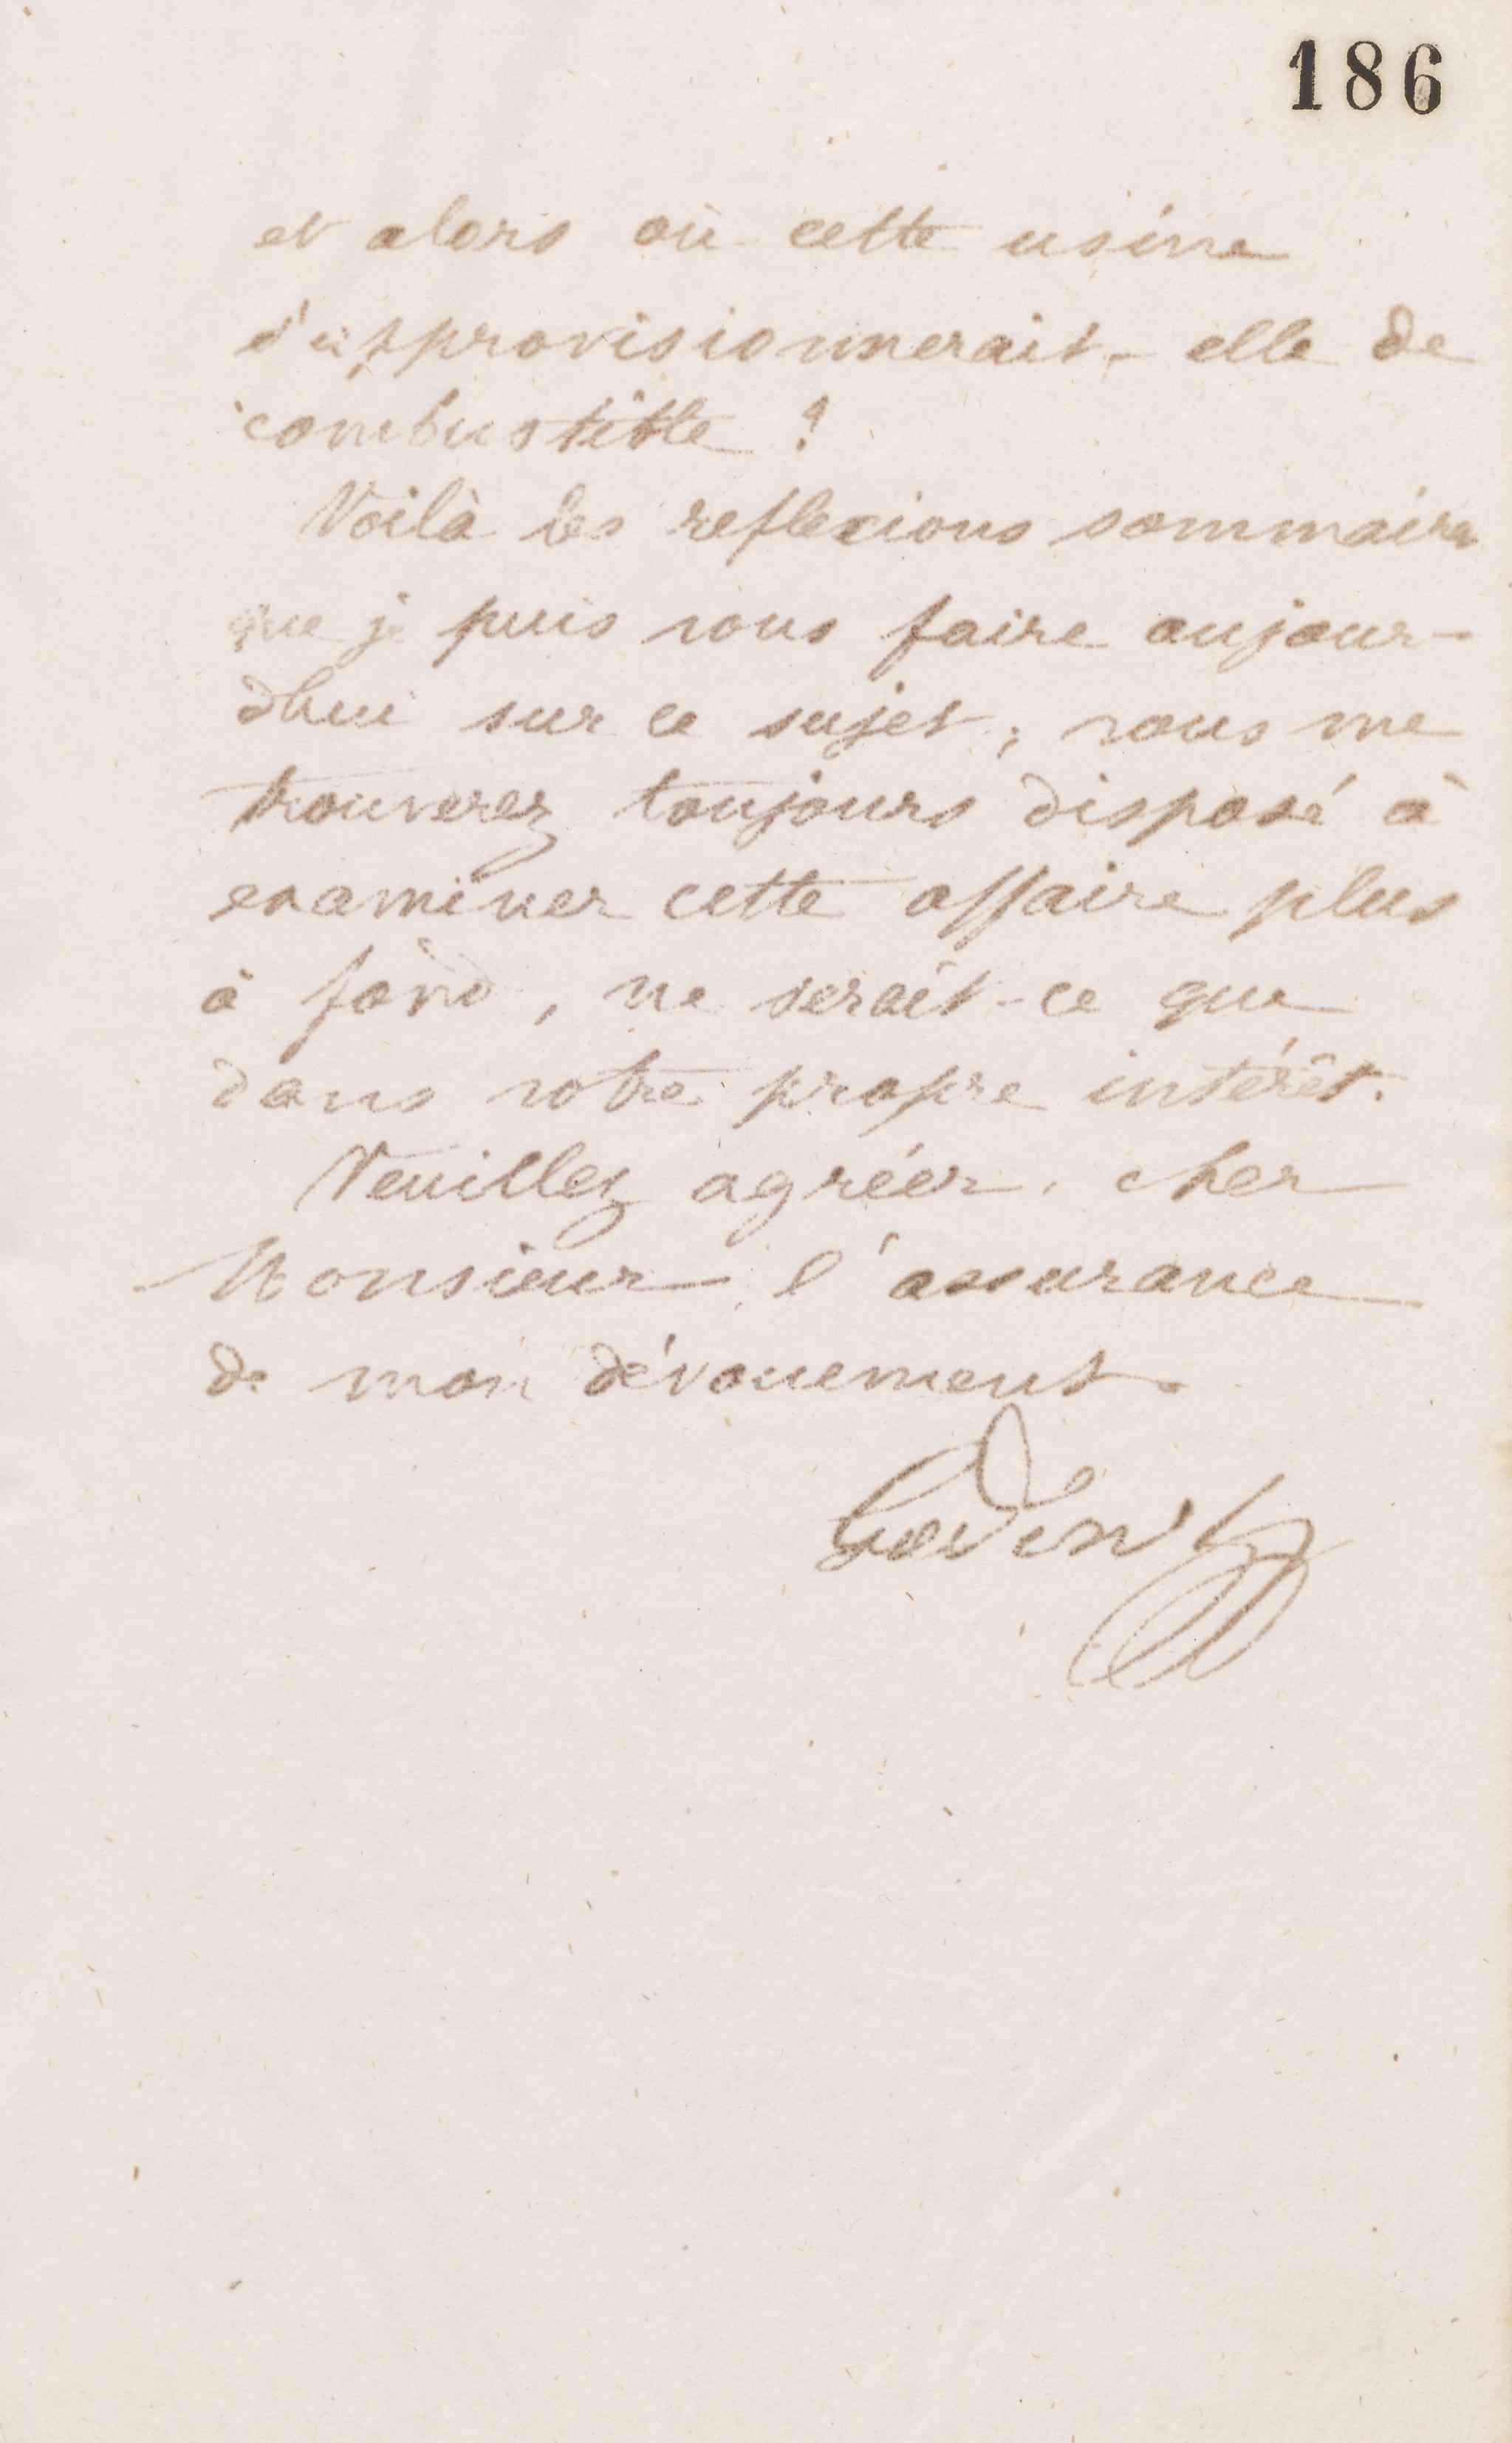 186
et alors où cette usine
s'approvisionnerait-elle de
combustible ?
Voilà les reflexions sommaires
que je puis vous faire aujour-
dhui sur ce sujet ; vous me
trouverez toujours disposé à
examiner cette affaire plus
à fond, ne serait-ce que
dans votre propre intérêt.
Veuillez agréer, cher
Monsieur, l'assurance
de mon dévouement.
Godin